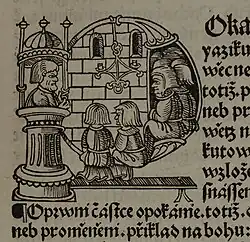 Oka
yaziku
wěcne
totiž. p
neb pr
wětz n
kutow
wzlože
snássen
¶ O prwni částce o pokánie. totiž.
neb proměnem. přiklad na bohuz